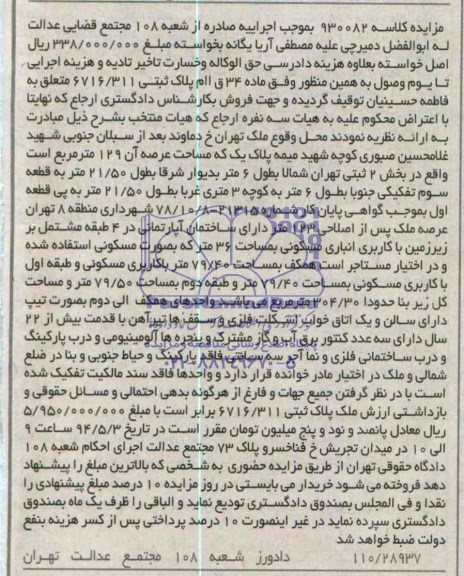 مزایده کلاسه ۹۳۰۰۸۲ بموجب اجراییه صادره از شعبه ۱۰۸ مجتمع قضایی عدالت
له ابوالفضل دمیرچی علیه مصطفی آریا یگانه بخواسته مبلغ ۳۳۸/۰۰۰/۰۰۰ ریال
اصل خواسته بعلاوه هزینه دادرسی حق الوکاله وخسارت تاخیر تادیه و هزینه اجرایی
تا یوم وصول به همین منظور وفق ماده ۳۴ ق اام پلاک ثبتی ۶۷۱۶/۳۱۱ متعلق به
فاطمه حسینیان توقیف گردیده و جهت فروش بکارشناس دادگستری ارجاع که نهایتا
با اعتراض محکوم علیه به هیات سه نفره ارجاع که هیات منتخب بشرح ذیل مبادرت
به ارائه نظریه نمودند محل وقوع ملک تهران خ دماوند بعد از سبلان جنوبی شهید
غلامحسین صبوری کوچه شهید میمه پلاک یک که مساحت عرصه آن ۱۲۹ مترمربع است
واقع در بخش ۲ ثبتی تهران شمالا بطول ۶ متر بدیوار شرقا بطول ۲۱/۵۰ متر به قطعه
سوم تفکیکی جنوبا بطول ۶ متر به کوچه ۳ متری غربا بطول ۲۱/۵۰ متر به پی قطعه
اول بموجب گواهی پایان کار شماره ۲۱۳۱۵-۷۸/۱۰/۸ شهرداری منطقه ۸ تهران
عرصه ملک پس از اصلاحی ۱۲۳ متر دارای ساختمان آپارتمانی در ۴ طبقه مشتمل بر
زیرزمین با کاربری انباری مسکونی بمساحت ۳۶ متر که بصورت مسکونی استفاده شده
و در اختیار مستاجر است همکف بمساحت ۷۹/۴۰ متر باکاربری مسکونی و طبقه اول
با کاربری مسکونی بمساحت ۷۹/۴۰ متر و طبقه دوم بمساحت ۷۹/۵۰ متر و مساحت
کل زیر بنا حدودا ۳۰۴/۳۰ مترمربع می باشد واحدهای همکف الی دوم بصورت تیپ
دارای سالن و یک اتاق خواب اسکلت فلزی و سقفها تیرآهن با قدمت بیش از ۲۲
سال دارای سه عدد کنتور برق آب و گاز مشترک و پنجره ها آلومینیومی و درب پارکینگ
و درب ساختمانی فلزی و نما آجر سه سانتی فاقد پارکینگ و حیاط جنوبی و بنا در ضلع
شمالی و ملک در اختیار مادر خوانده قرار دارد و واحدها فاقد سند مالکیت تفکیک شده
است با در نظر گرفتن جمیع جهات و فارغ از هرگونه بدهی احتمالی و مسائل حقوقی و
بازداشتی ارزش ملک پلاک ثبتی ۶۷۱۶/۳۱۱ برابر است با مبلغ ۵/۹۵۰/۰۰۰/۰۰۰
ریال معادل پانصد و نود و پنج میلیون تومان مقرر است در تاریخ ۹۴/۵/۳ ساعت ۹
الی ۱۰ در میدان تجریش خ فناخسرو پلاک ۷۳ مجتمع عدالت اجرای احکام شعبه ۱۰۸
دادگاه حقوقی تهران از طریق مزایده حضوری به شخصی که بالاترین مبلغ را پیشنهاد
دهد فروخته می شود خریدار می بایستی در روز مزایده ۱۰ درصد مبلغ پیشنهادی را
نقدا و فی المجلس بصندوق دادگستری تودیع نماید و الباقی را ظرف یک ماه بصندوق
دادگستری سپرده نماید در غیر اینصورت ۱۰ درصد پرداختی پس از کسر هزینه بنفع
دولت ضبط خواهد شد
۱۱۰/۲۸۹۳۷ دادورز شعبه ۱۰۸ مجتمع عدالت تهران